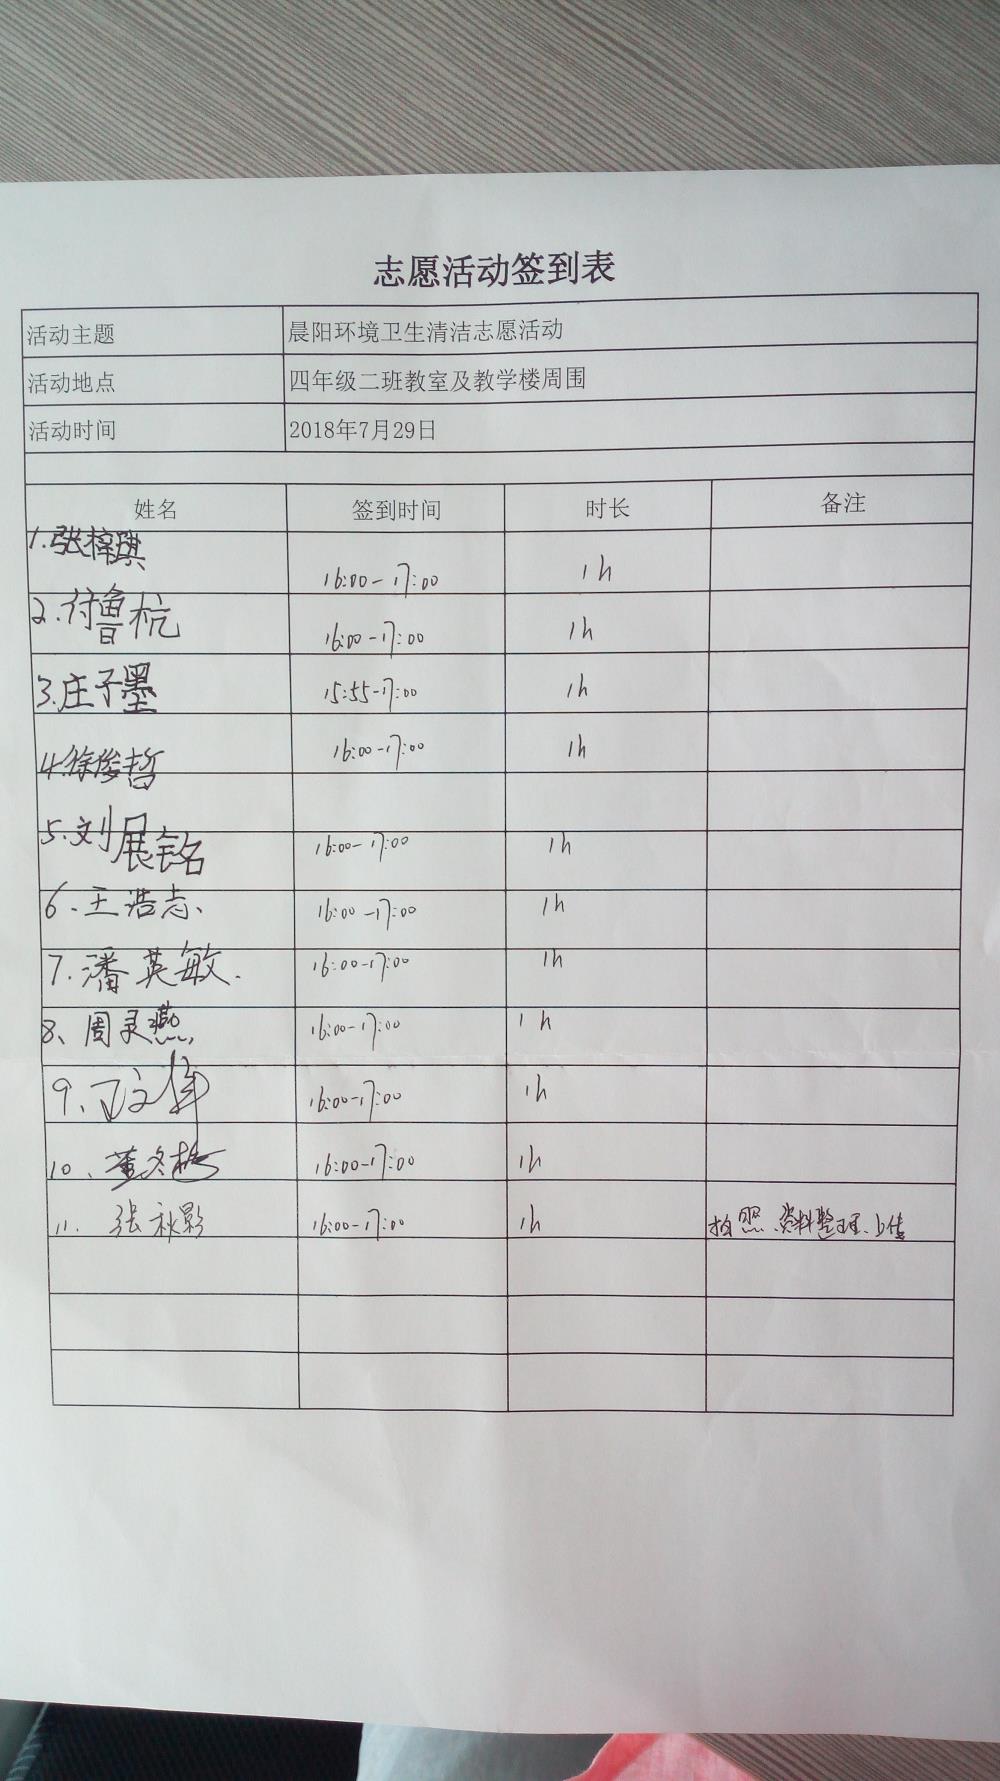 志愿活动签到表
活动主题 晨阳环境卫生清洁志愿活动
活动地点 四年级二班教室及教学楼周围
活动时间 2018年7月29日
姓名 签到时间 时长 备注
1.张梓琪 16:00-17:00 1h
2.付鲁杭 16:00-17:00 1h
3.庄子墨 15:55-17:00 1h
4.徐俊哲 16:00-17:00 1h
5.刘展铭 16:00-17:00 1h
6、王浩志、 16:00-17:00 1h
7.潘英敏. 16:00-17:00 1h
8、周灵燕, 16:00-17:00 1h
9、 16:00-17:00 1h
10、董冬梅 16:00-17:00 1h
11. 张秋影 16:00-17:00 1h 拍照、资料整理、上传